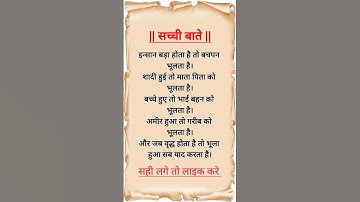 || सच्ची बाते ||
इन्सान बड़ा होता है तो बचपन
भूलता है।
शादी हुई तो माता पिता को
भूलता है।
बच्चे हुए तो भाई बहन को
भूलता है।
अमीर हुआ तो गरीब को
भूलता है।
और जब वृद्ध होता है तो भूला
हुआ सब याद करता है।
सही लगे तो लाइक करे